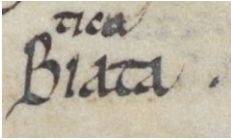 tica
Biata.